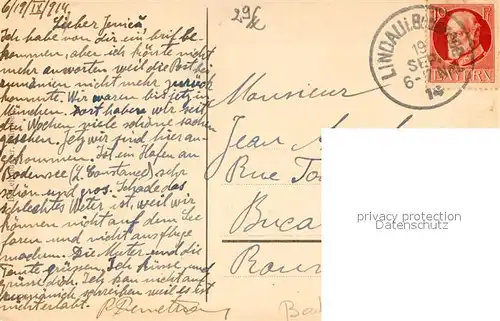 6/19/IX/914.
Lieber Jonică
Ich habe von Dir ein brif be-
kommen, aber ich könte nicht
mehr anworten weil die Post bei
rumänien nicht mehr zurück
kommte. Wir waren bis jetz in
München. Dort haben wir seit
drei Wochen viele schöne sachen
gesehen. Jetz wir sind hier an-
gekommen. Ist ein Hafen an
Bodensee (L. Constanca) sehr
schön und gros. Schade das
schlechtes Weter ist, weil wir
können nicht auf dem See
faren und nicht ausfluge
machen. Die Muter und die
Tante grüssen. Ich küsse und
grüse dich. Ich kan nicht auf
rumänich schreiben weil es ist
nicht erlabt.
29f
LINDAU I.B.
19
SEP.
6-7
14
10 PF
BAYERN
Monsieur
Jean
Rue
Buca
Rou
privacy protection
OldThing